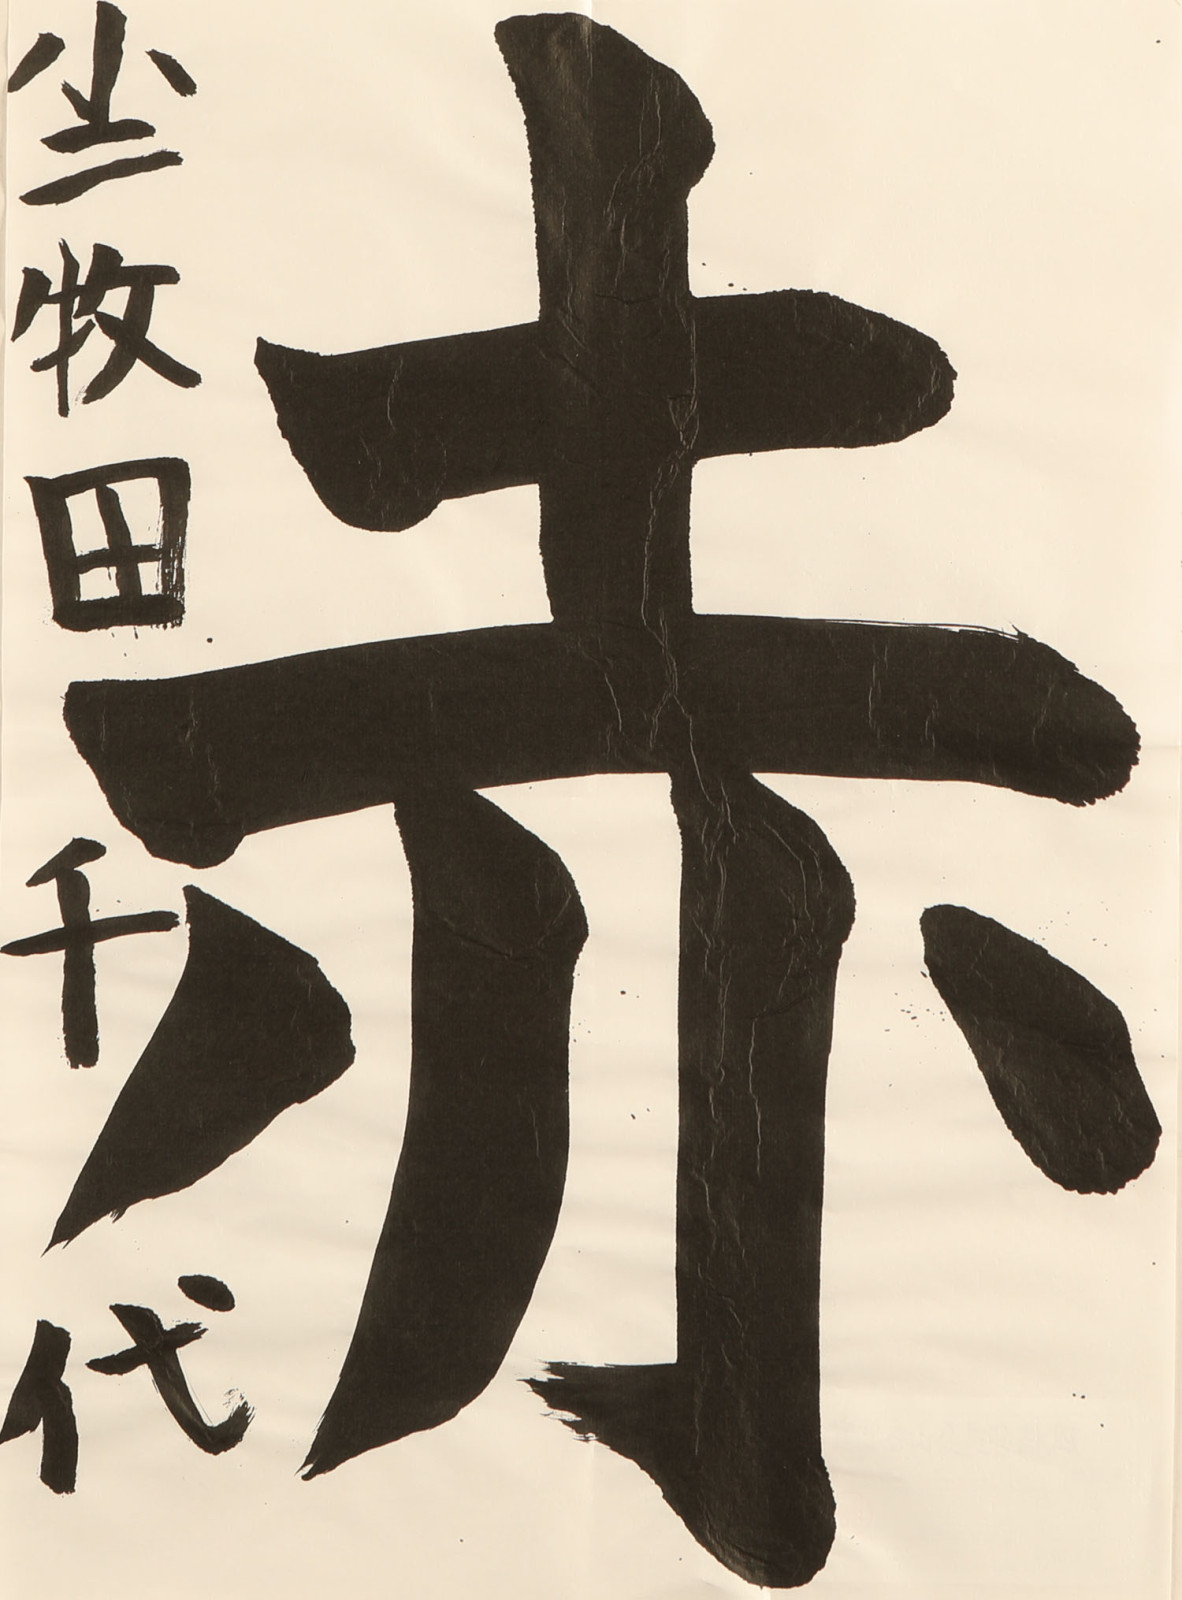 赤
小二牧田千代